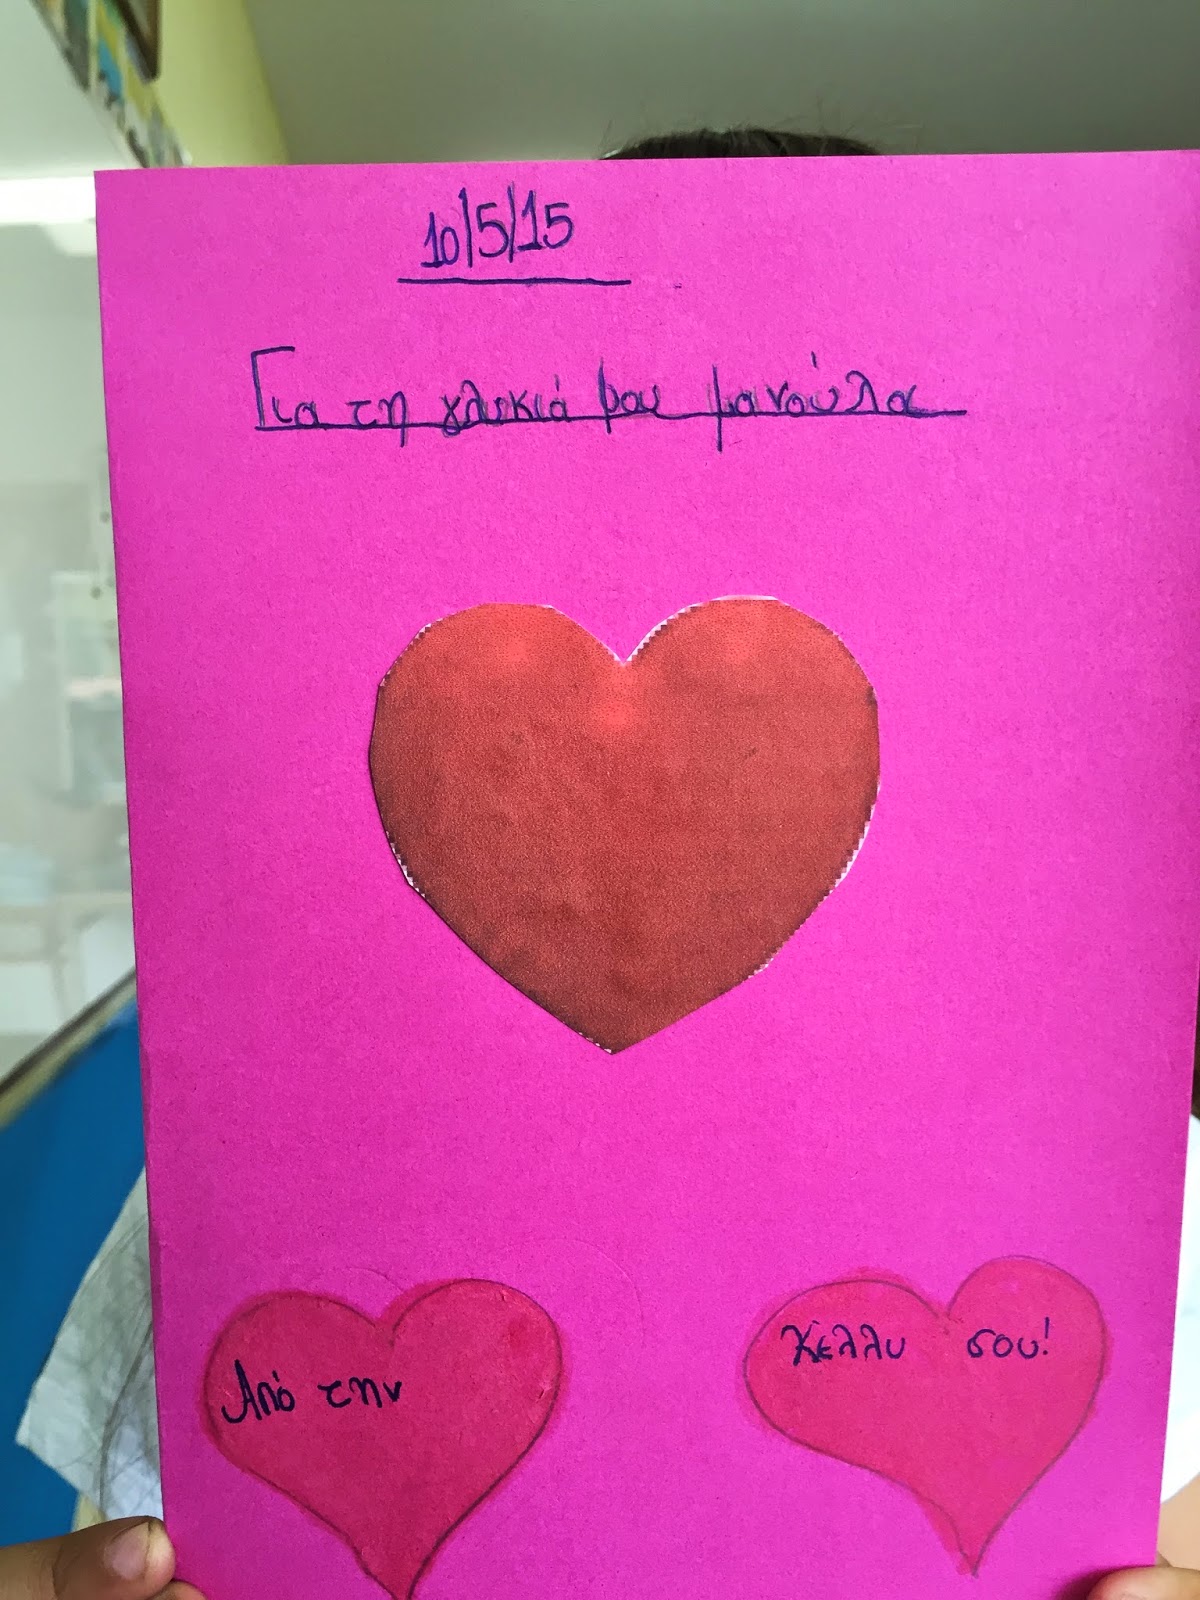 10/5/15
Για τη γλυκιά μου μανούλα
Από την
Κέλλυ σου!